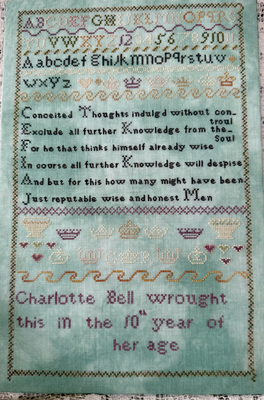 ABCDEFGH I K L M N O P Q R
VWXYZ 12 56 910
Aabcdef GhijklmnoPqrstuv
wxyz
Conceited Thoughts indulgd without con_
troul
Exclude all further Knowledge from the_
Soul
For he that thinks himself already wise
In course all further Knowledge will despise
And but for this how many might have been
Just reputable wise andhonest Men
Charlotte Bell wrought
this in the 10th year of
her age